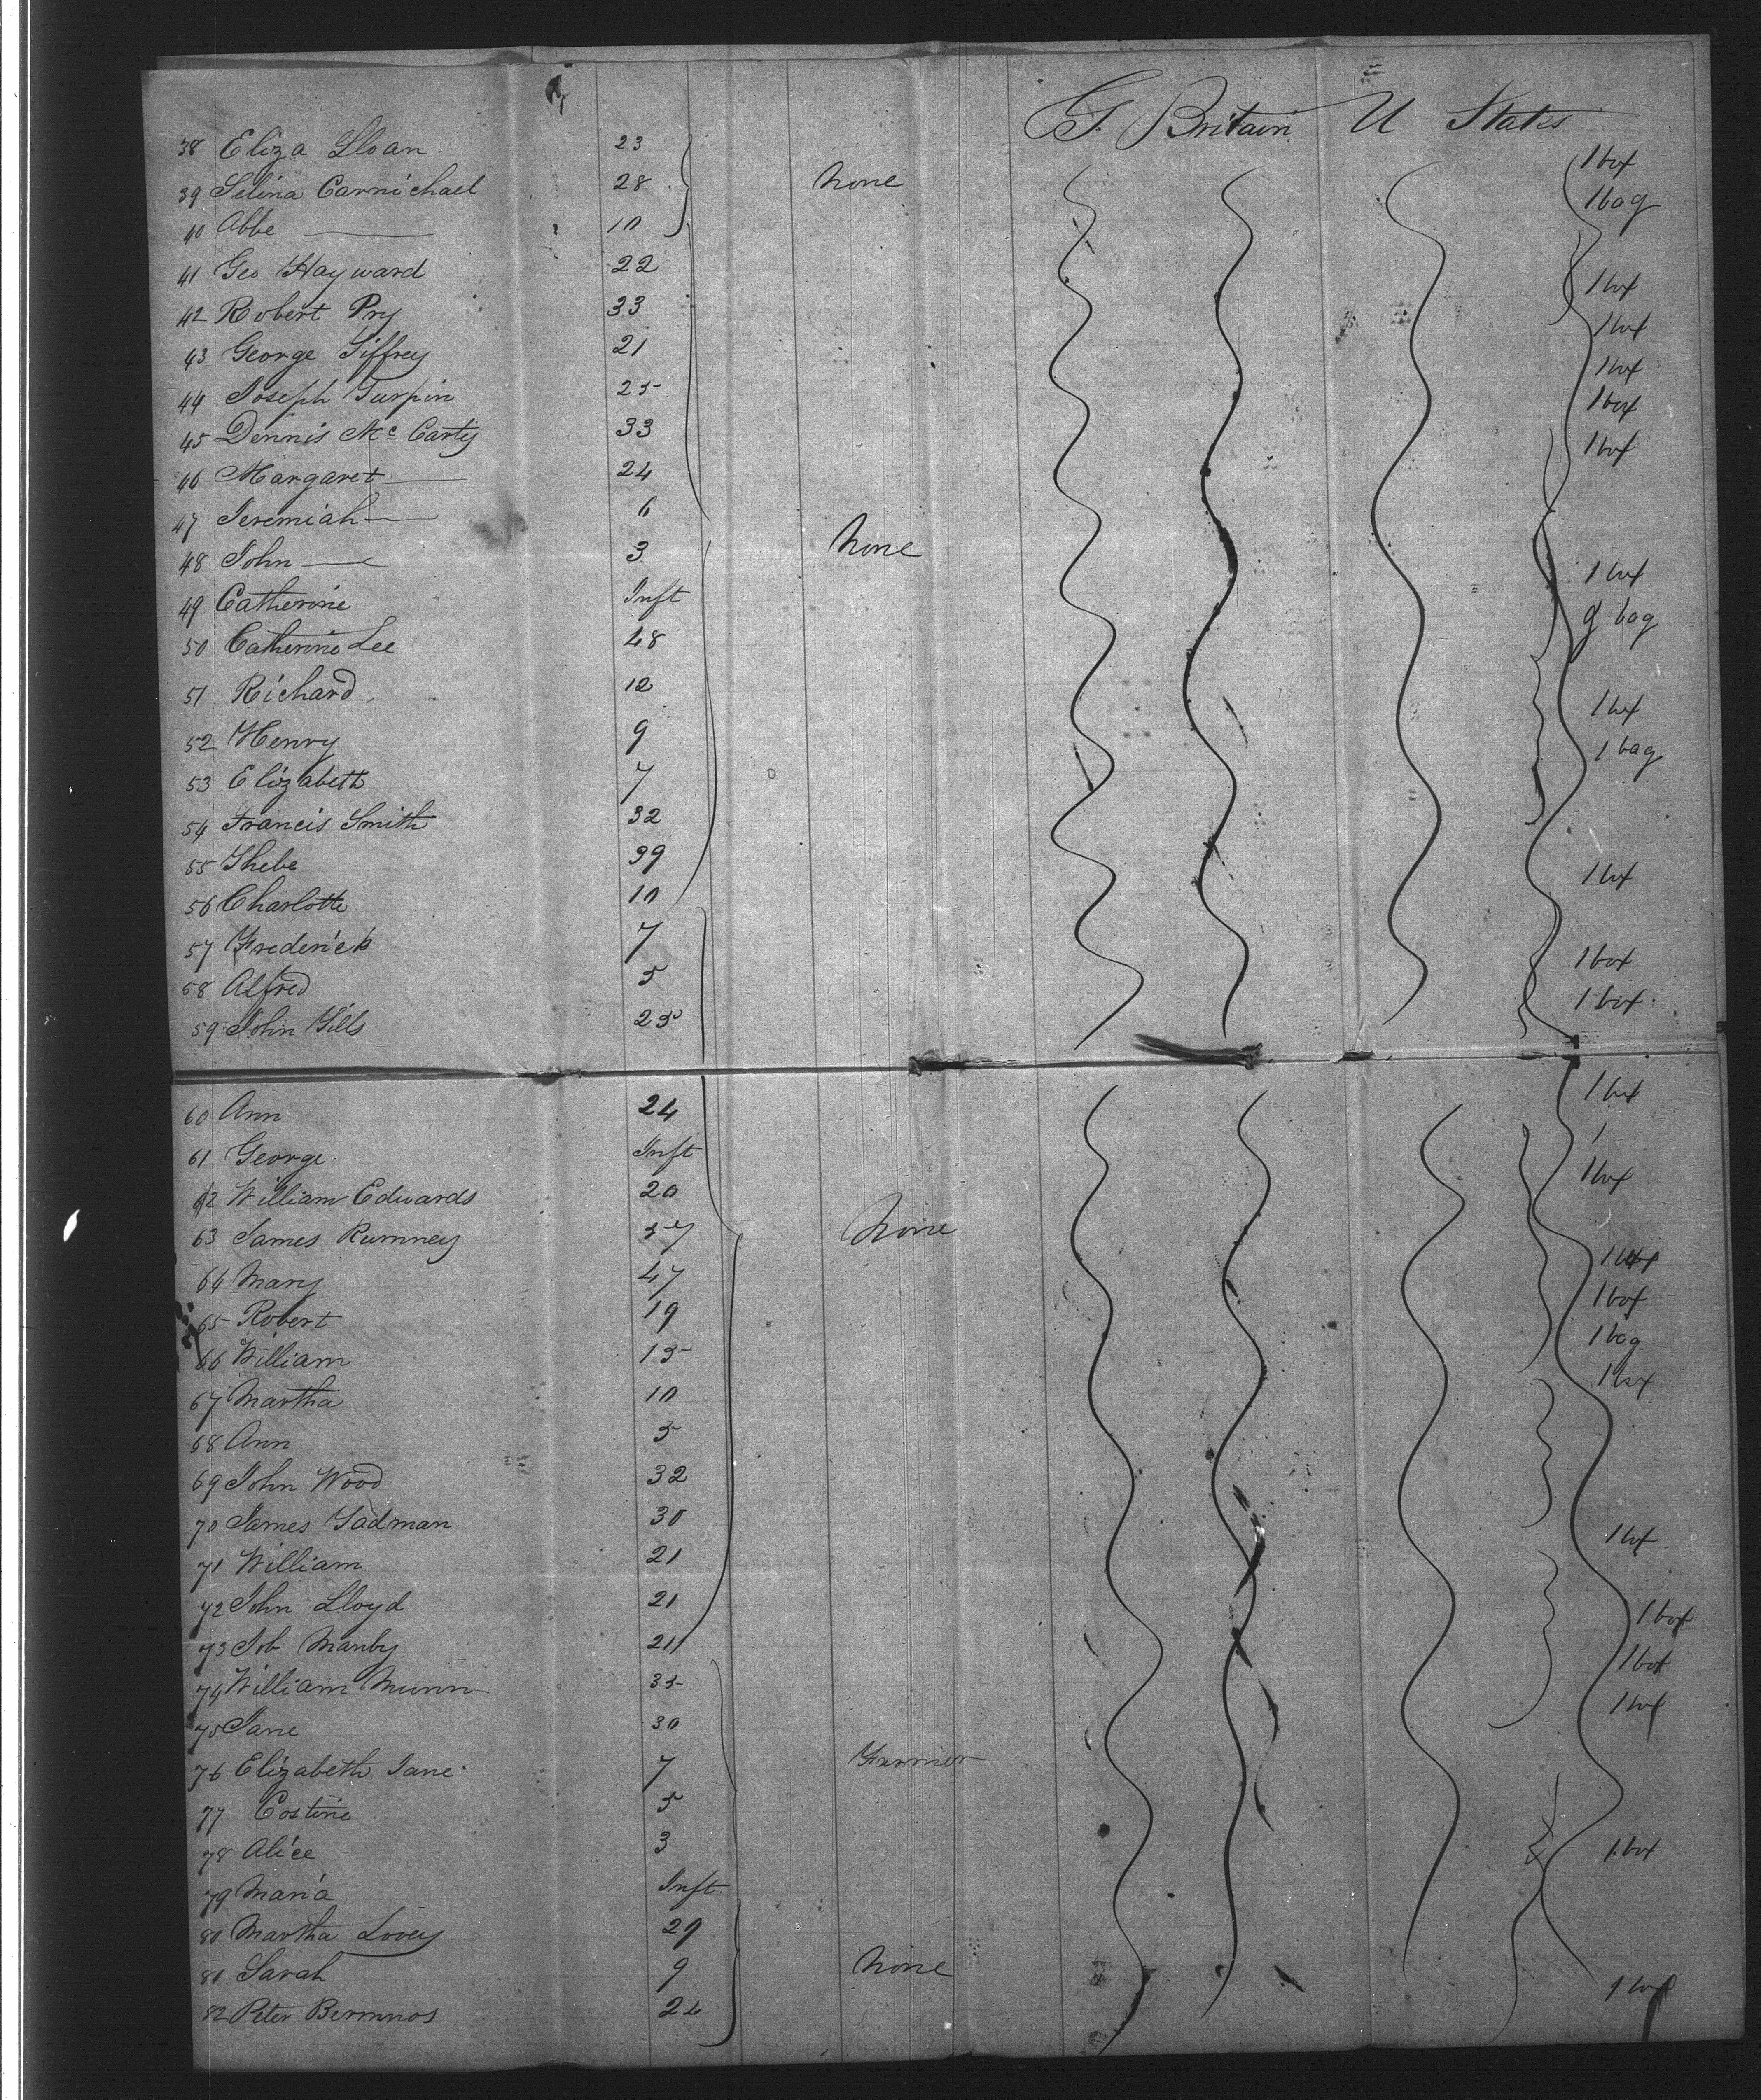 G. Britain U States
38 Eliza Sloan 23 1 box
39 Selina Carmichael 28 None 1 bag
40 Abbe 10
41 Geo Hayward 22 1 box
42 Robert Pry 33 1 box
43 George Siffrey 21 1 box
44 Joseph Turpin 25 1 box
45 Dennis Mc Carty 33 1 box
46 Margaret 24
47 Jeremiah 6
48 John 3 None 1 box
49 Catherine Inft bag
50 Catherine Lee 48
51 Richard 12 1 box
52 Henry 9 1 bag
53 Elizabeth 7
54 Francis Smith 32
55 Phebe 39 1 box
56 Charlotte 10
57 Frederick 7 1 box
58 Alfred 5 1 box
59 John Gills 25
60 Ann 24 1 box
61 George Inft 1
62 William Edwards 20 1 box
63 James Rumney 57 None
64 Mary 47 1 box
65 Robert 19 1 box
66 William 15 1 bag
67 Martha 10 1 box
68 Ann 5
69 John Wood 32
70 James Gadman 30 1 box
71 William 21
72 John Lloyd 21 1 box
73 Job Manby 21 1 box
74 William Munn 35 1 box
75 Jane 30
76 Elizabeth Jane 7 Farmer
77 Costine 5
78 Alice 3 1 box
79 Maria Inft
80 Martha Lovey 29
81 Sarah 9 None 1 box
82 Peter Bermnos 24